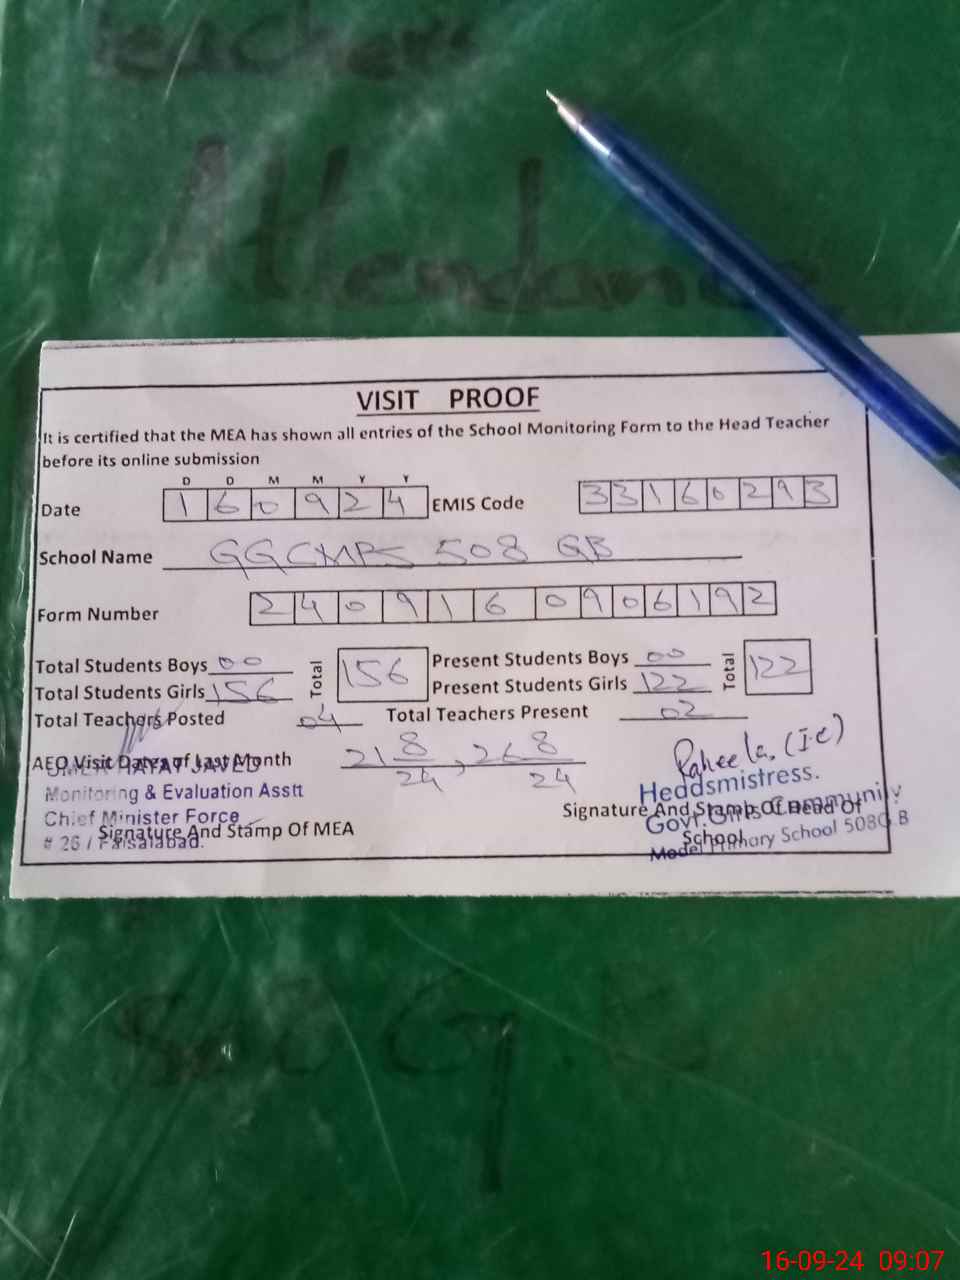 Teacher
Attendance
VISIT PROOF
It is certified that the MEA has shown all entries of the School Monitoring Form to the Head Teacher
before its online submission
D D M M Y Y
Date 1 6 0 9 2 4 EMIS Code 3 3 1 6 0 2 9 3
School Name GGCMPS 508 GB
Form Number 2 4 0 9 1 6 0 9 0 6 1 9 2
Total Students Boys 00 Total 156 Present Students Boys 00 Total 122
Total Students Girls 156 Present Students Girls 122
Total Teachers Posted 04 Total Teachers Present 02
AEO Visit Dates of Last Month 21 8/24, 26 8/24
Raheela, (I.C)
HAYAT JAVED
Monitoring & Evaluation Asstt
Chief Minister Force
# 26 / Faisalabad.
Signature And Stamp Of MEA
Headsmistress.
Govt. Girls Community
Model Primary School 508G.B
Signature And Stamp Of Head Of
School
508 G.B
16-09-24 09:07